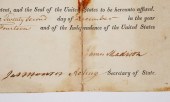 and the Seal of the United States to be hereunto affixed.
day of December in the year
and of the Independence of the United States
James Madison
Jas Monroe Acting Secretary of State.